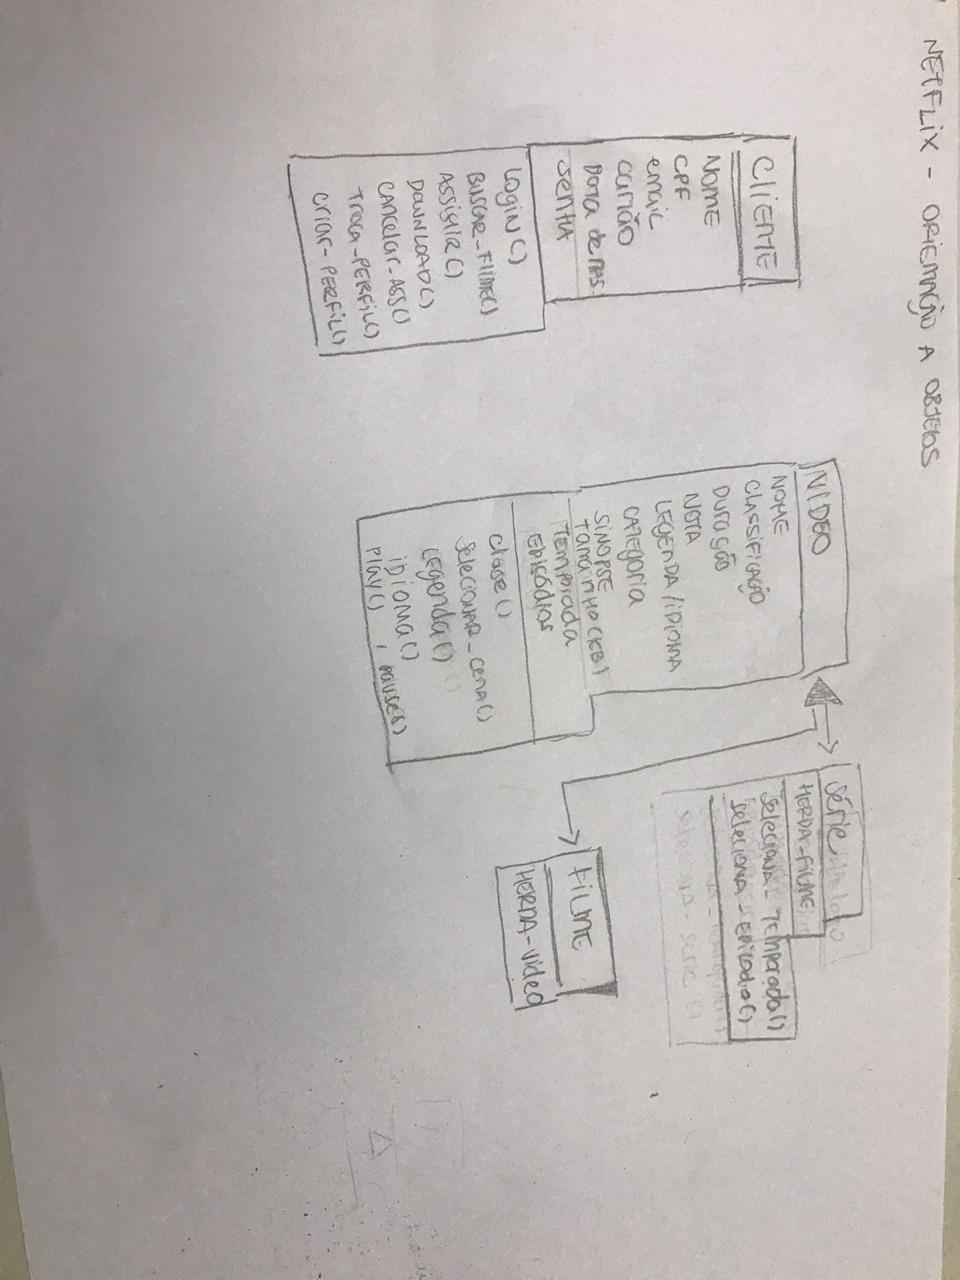 NETFLIX - ORIENTAÇÃO A OBJETOS
CLIENTE
NOME
CPF
email
cartão
Data de nas.
senha
Login()
Buscar_Filme()
Assistir()
DOWNLOAD()
cancelar-Ass()
Troca-PERFIL()
criar-PERFIL()
VIDEO
NOME
CLASSIFICAÇÃO
DURAÇÃO
NOTA
LEGENDA/IDIOMA
CATEGORIA
SINOPSE
Tamanho(KB)
Temporada
EPISÓDIOS
close()
selecionar_cena()
Legenda()
IDIOMA()
PLAY(), pause()
Série
HERDA-FILME
seleciona-Temporada()
seleciona-Episodio()
FILME
HERDA-video